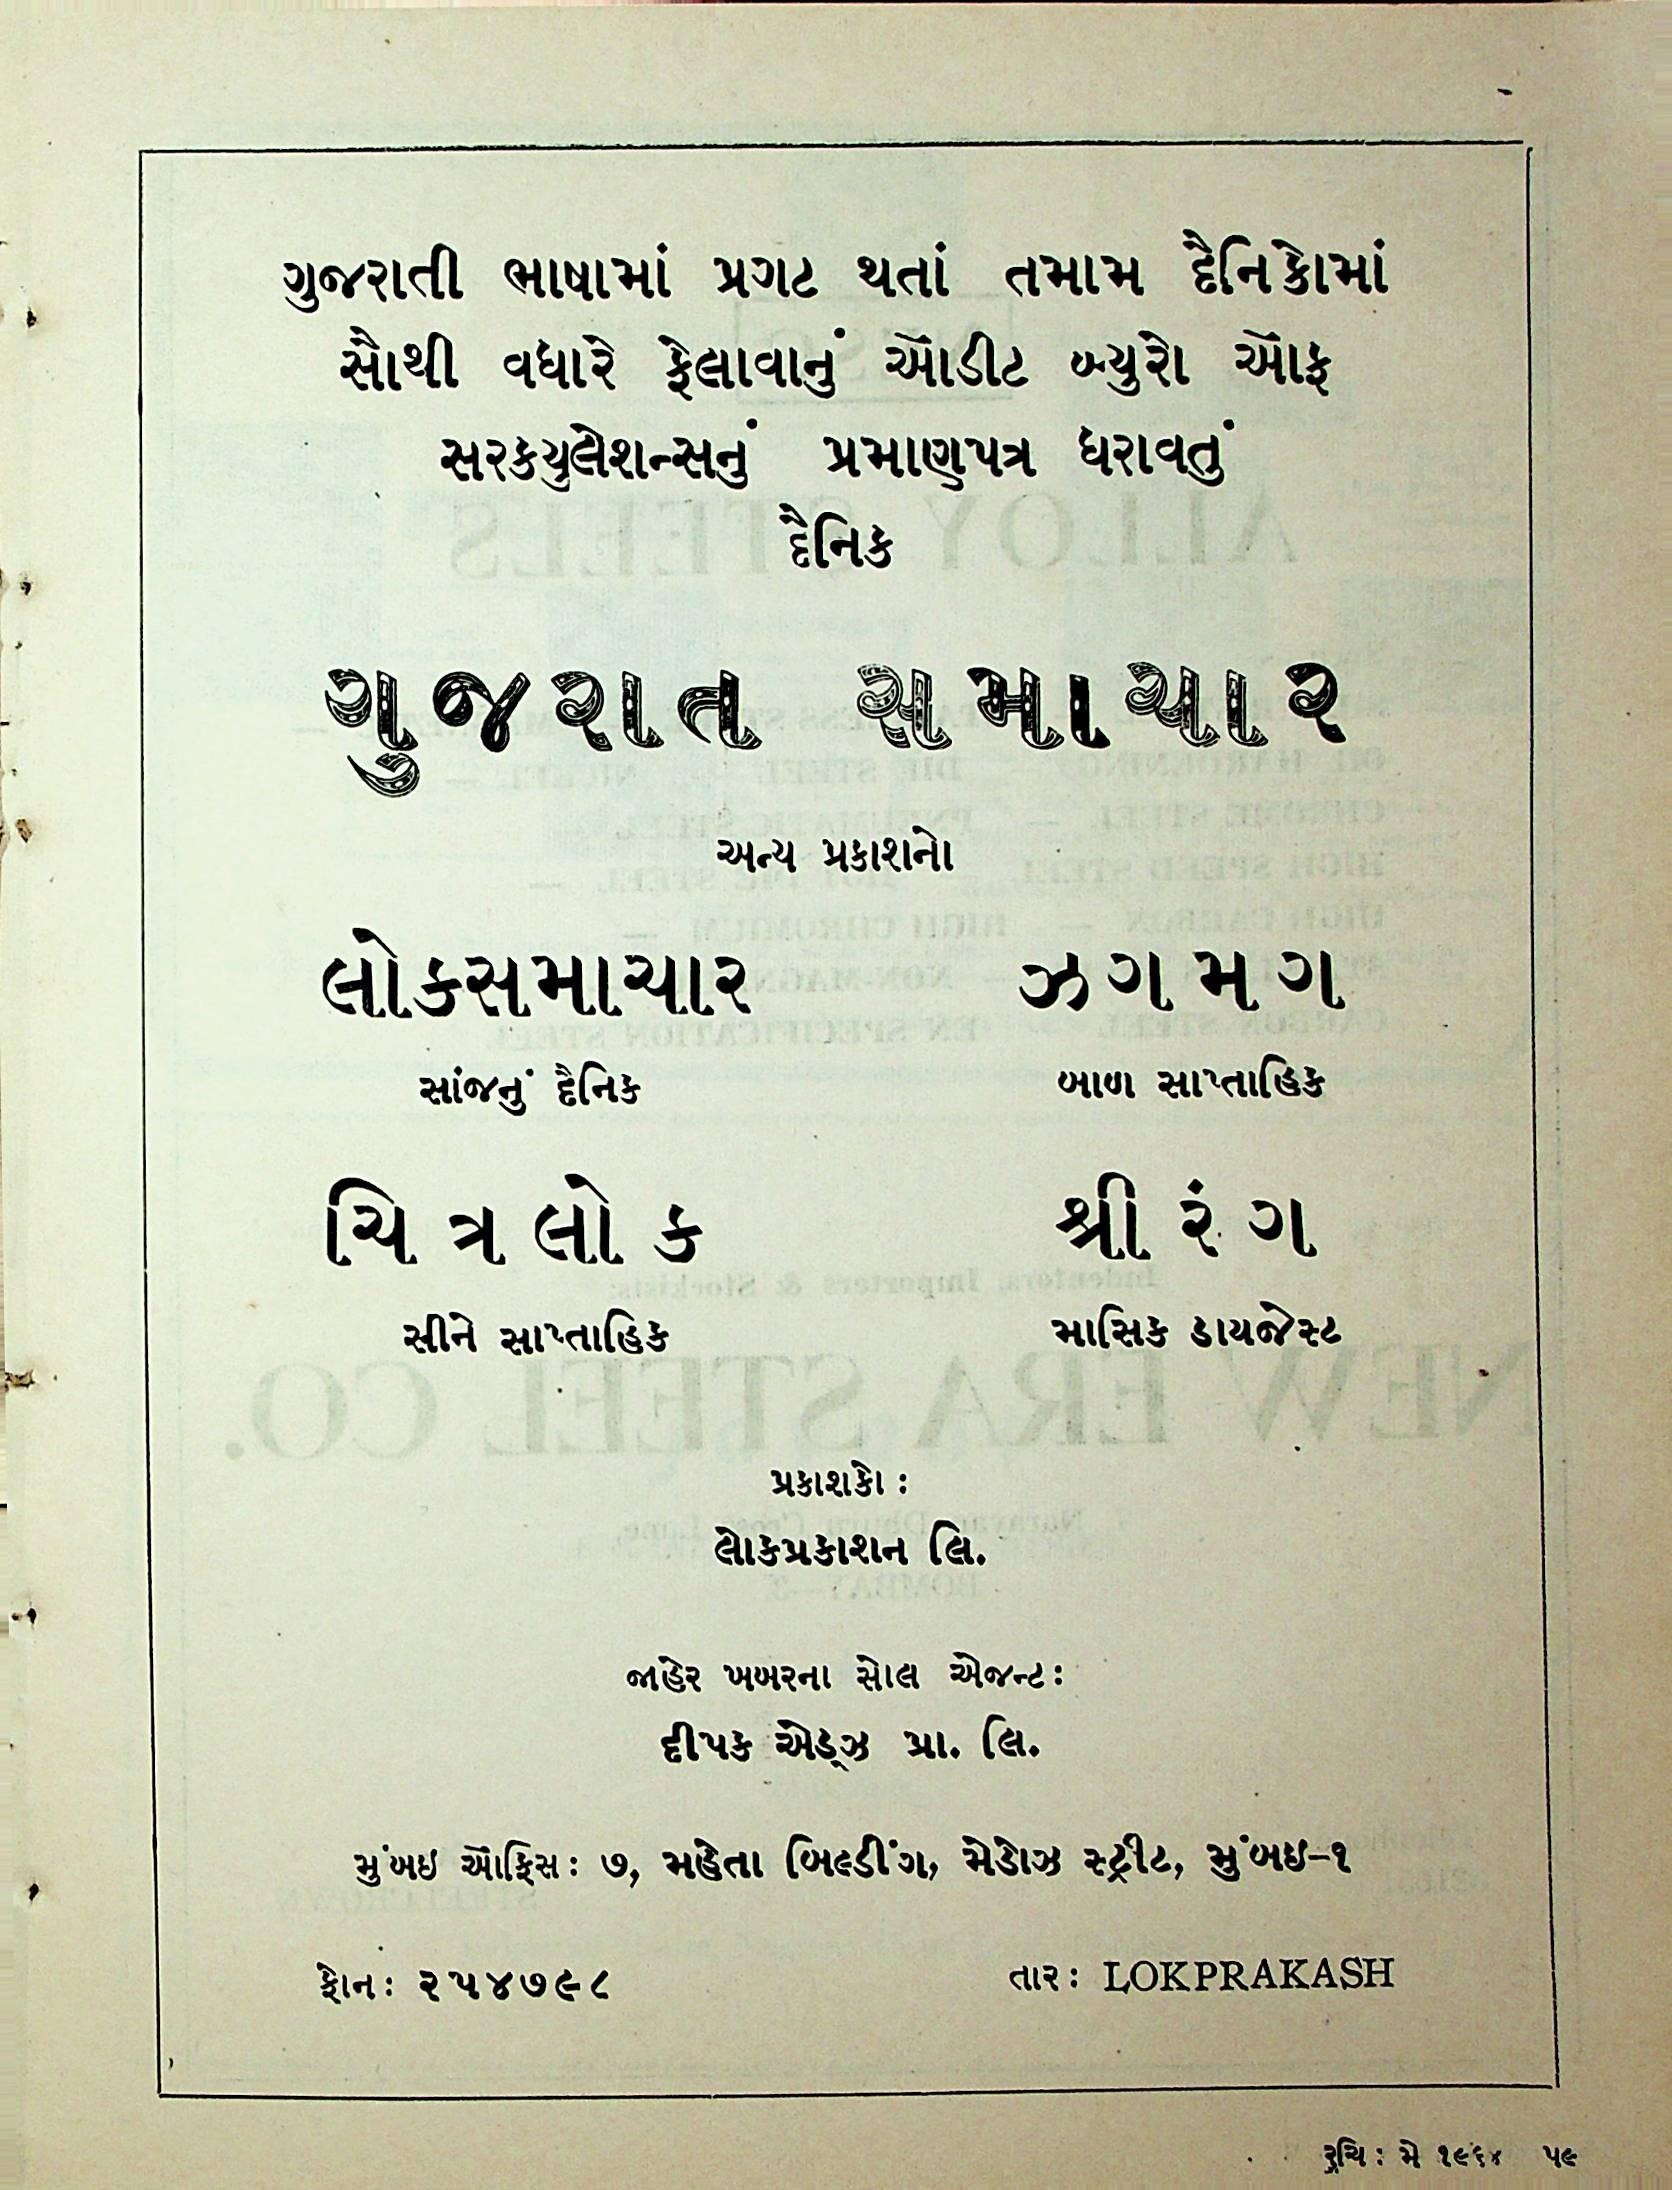 ગુજરાતી ભાષામાં પ્રગટ થતાં તમામ દૈનિકોમાં
સૌથી વધારે ફેલાવાનું ઑડીટ બ્યુરો ઑફ
સરક્યુલેશન્સનું પ્રમાણપત્ર ધરાવતું
દૈનિક
ગુજરાત સમાચાર
અન્ય પ્રકાશનો
લોકસમાચાર ઝગમગ
સાંજનું દૈનિક બાળ સાપ્તાહિક
ચિત્રલોક શ્રીરંગ
સીને સાપ્તાહિક માસિક ડાયજેસ્ટ
પ્રકાશકો :
લોકપ્રકાશન લિ.
જાહેર ખબરના સોલ એજન્ટ:
દીપક એડ્ઝ પ્રા. લિ.
મુંબઇ ઑફિસ: ૭, મહેતા બિલ્ડીંગ, મેડોઝ સ્ટ્રીટ, મુંબઇ-૧
ફોન: ૨૫૪૭૯૮ તાર: LOKPRAKASH
રુચિ: મે ૧૯૬૪ ૫૯